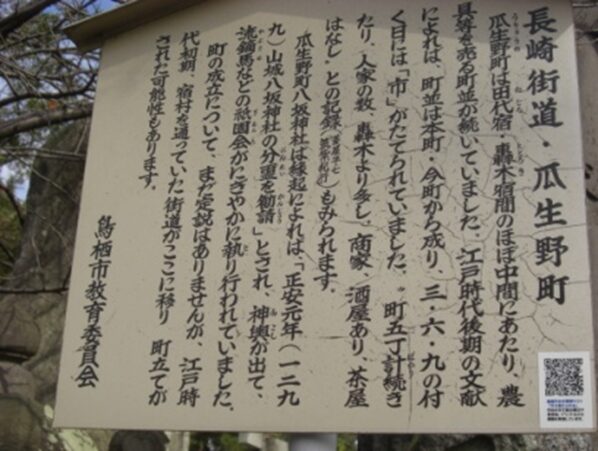 長崎街道・瓜生野町
瓜生野町は田代宿・轟木宿間のほぼ中間にあたり、農
具等を売る町並が続いていました。江戸時代後期の文献
によれば、町並は本町・今町から成り、三・六・九の付
く日には「市」がたてられていました。"町五丁計続き
たり、人家の数、轟木より多し。商家、酒屋あり、茶屋
はなし"との記録もみられます。
瓜生野町八坂神社は縁起によれば「正安元年(一二九
九)山城八坂神社の分霊を勧請」とされ、神輿が出て、
流鏑馬などの祇園会がにぎやかに執り行われていました。
町の成立について、まだ定説はありませんが、江戸時
代初期、宿村を通っていた街道がここに移り 町立てが
された可能性もあります。
鳥栖市教育委員会